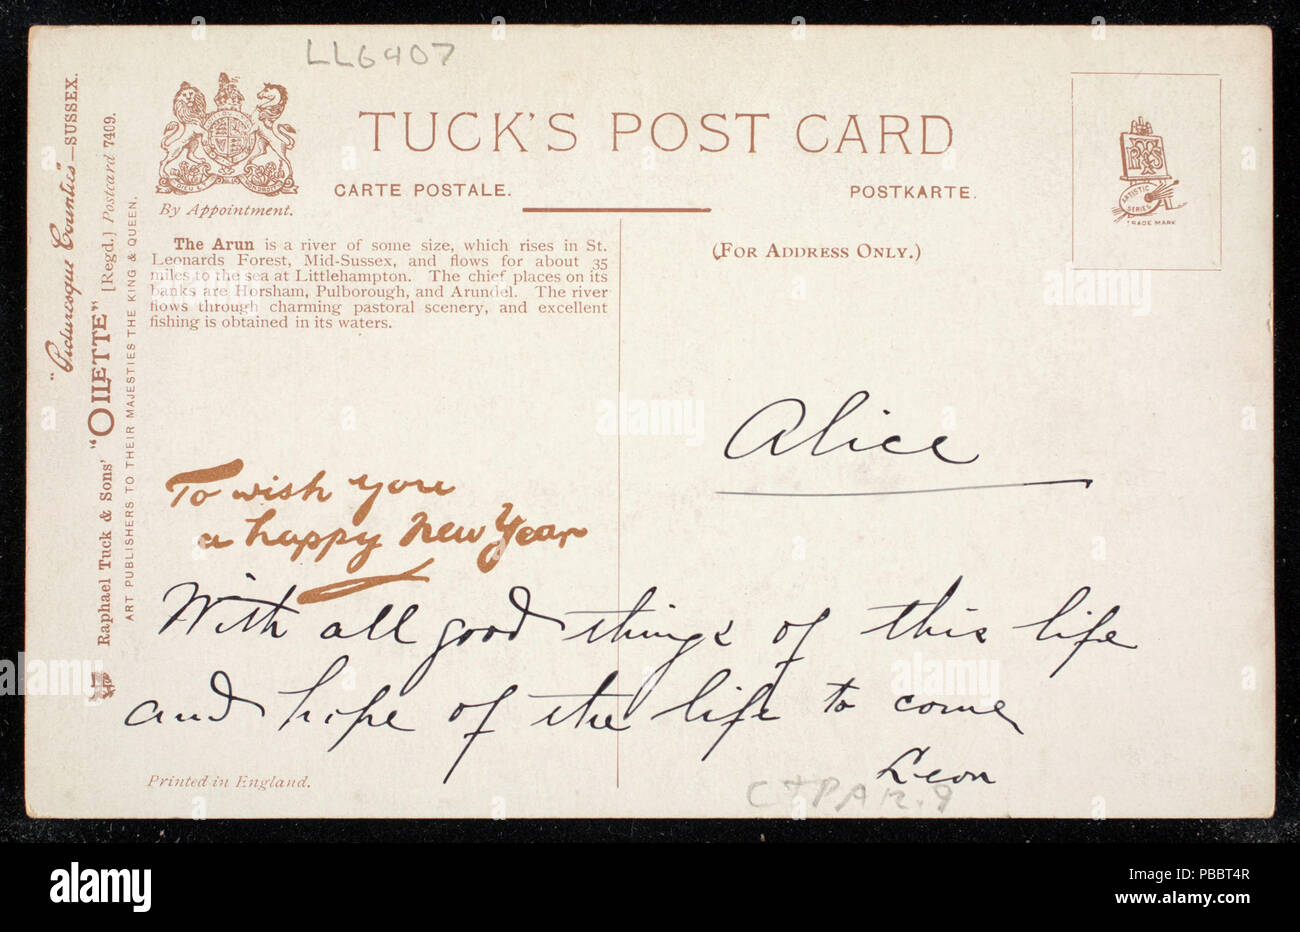 LL6407
TUCK'S POST CARD
CARTE POSTALE.
POSTKARTE.
By Appointment.
(FOR ADDRESS ONLY.)
ARTISTIC
SERIES
TRADE MARK
"Picturesque Counties"—SUSSEX.
Raphael Tuck & Sons' "OILETTE" [Regd.] Postcard 7409.
ART PUBLISHERS TO THEIR MAJESTIES THE KING & QUEEN.
The Arun is a river of some size, which rises in St.
Leonards Forest, Mid-Sussex, and flows for about 35
miles to the sea at Littlehampton. The chief places on its
banks are Horsham, Pulborough, and Arundel. The river
flows through charming pastoral scenery, and excellent
fishing is obtained in its waters.
Alice
To wish you
a happy New Year
With all good things of this life
and hope of the life to come
Leon
Printed in England.
alamy
PBBT4R
www.alamy.com